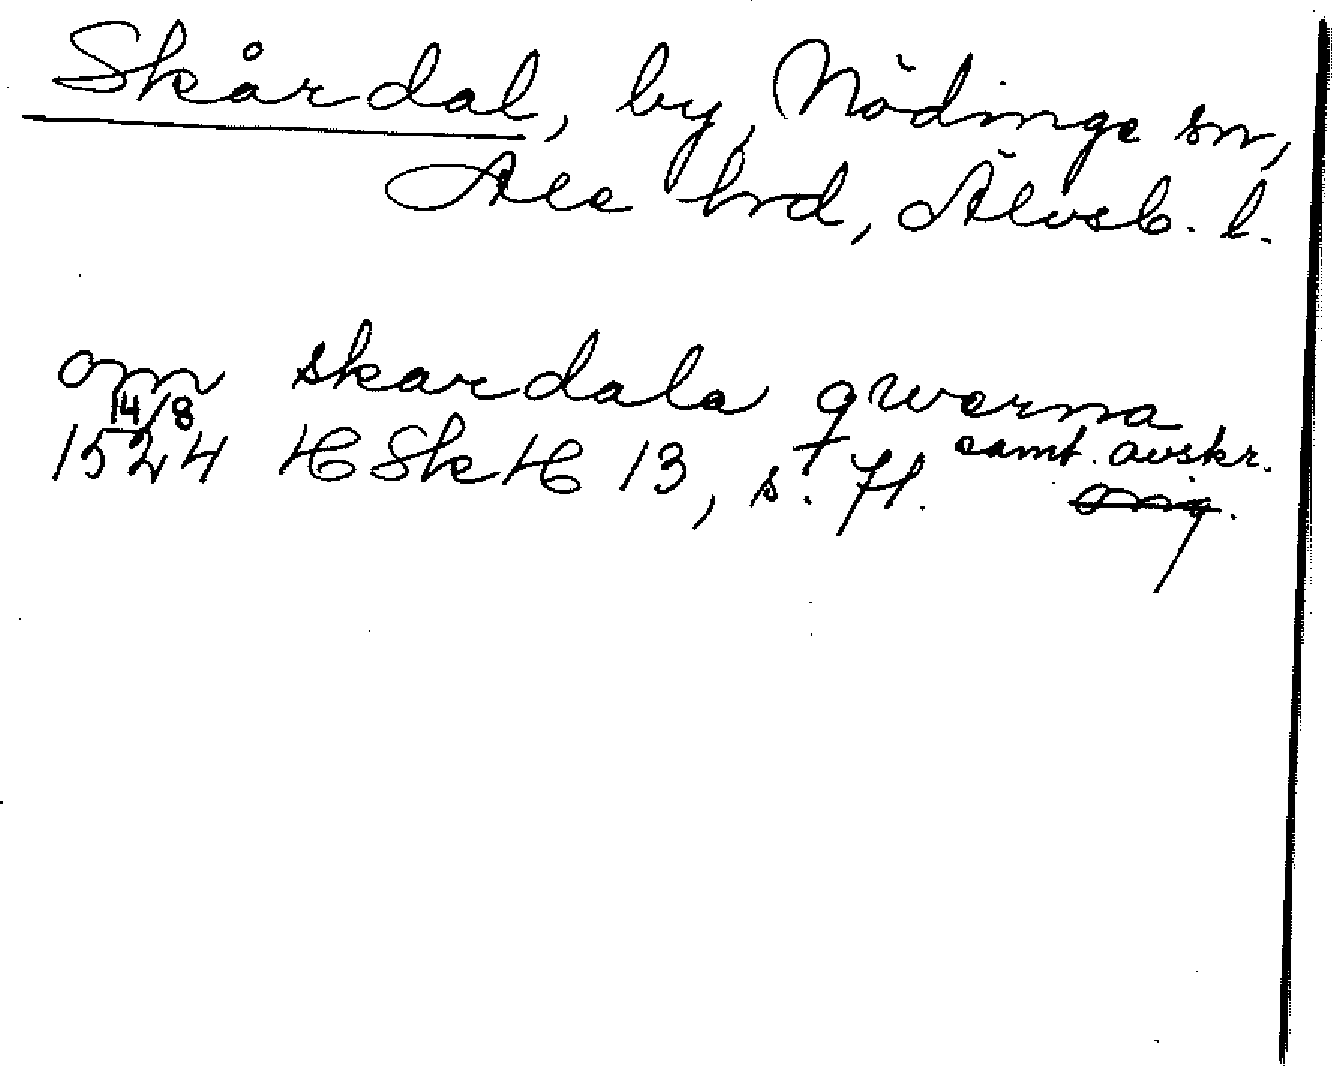 Skårdal, by, Nödinge sn,
Ale hrd, Älvsb. l.
om skardala qwerna
14/8
1524 HSkH 13, s. 71. samt. avskr.
orig.